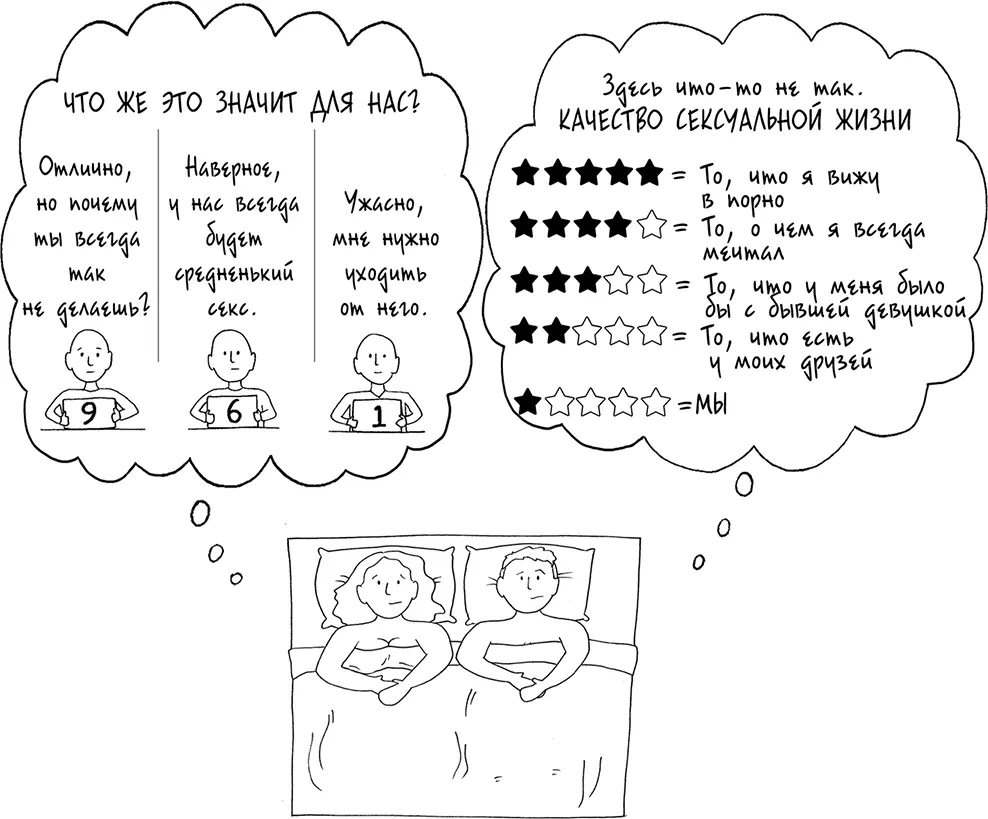 ЧТО ЖЕ ЭТО ЗНАЧИТ ДЛЯ НАС?
Отлично,
но почему
ты всегда
так
не делаешь?
9
Наверное,
у нас всегда
будет
средненький
секс.
6
Ужасно,
мне нужно
уходить
от него.
1
Здесь что-то не так.
КАЧЕСТВО СЕКСУАЛЬНОЙ ЖИЗНИ
★★★★★ = То, что я вижу
в порно
★★★★☆ = То, о чем я всегда
мечтал
★★★☆☆ = То, что у меня было
бы с бывшей девушкой
★★☆☆☆ = То, что есть
у моих друзей
★☆☆☆☆ =МЫ